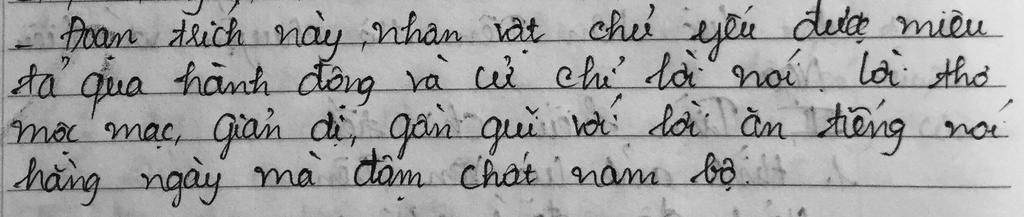 - Đoạn trích này, nhân vật chủ yếu được miêu
tả qua hành động và cử chỉ lời nói. Lời thơ
mộc mạc, giản dị, gần guĩ với lời ăn tiếng nói
hằng ngày mà đậm chất nam bộ.